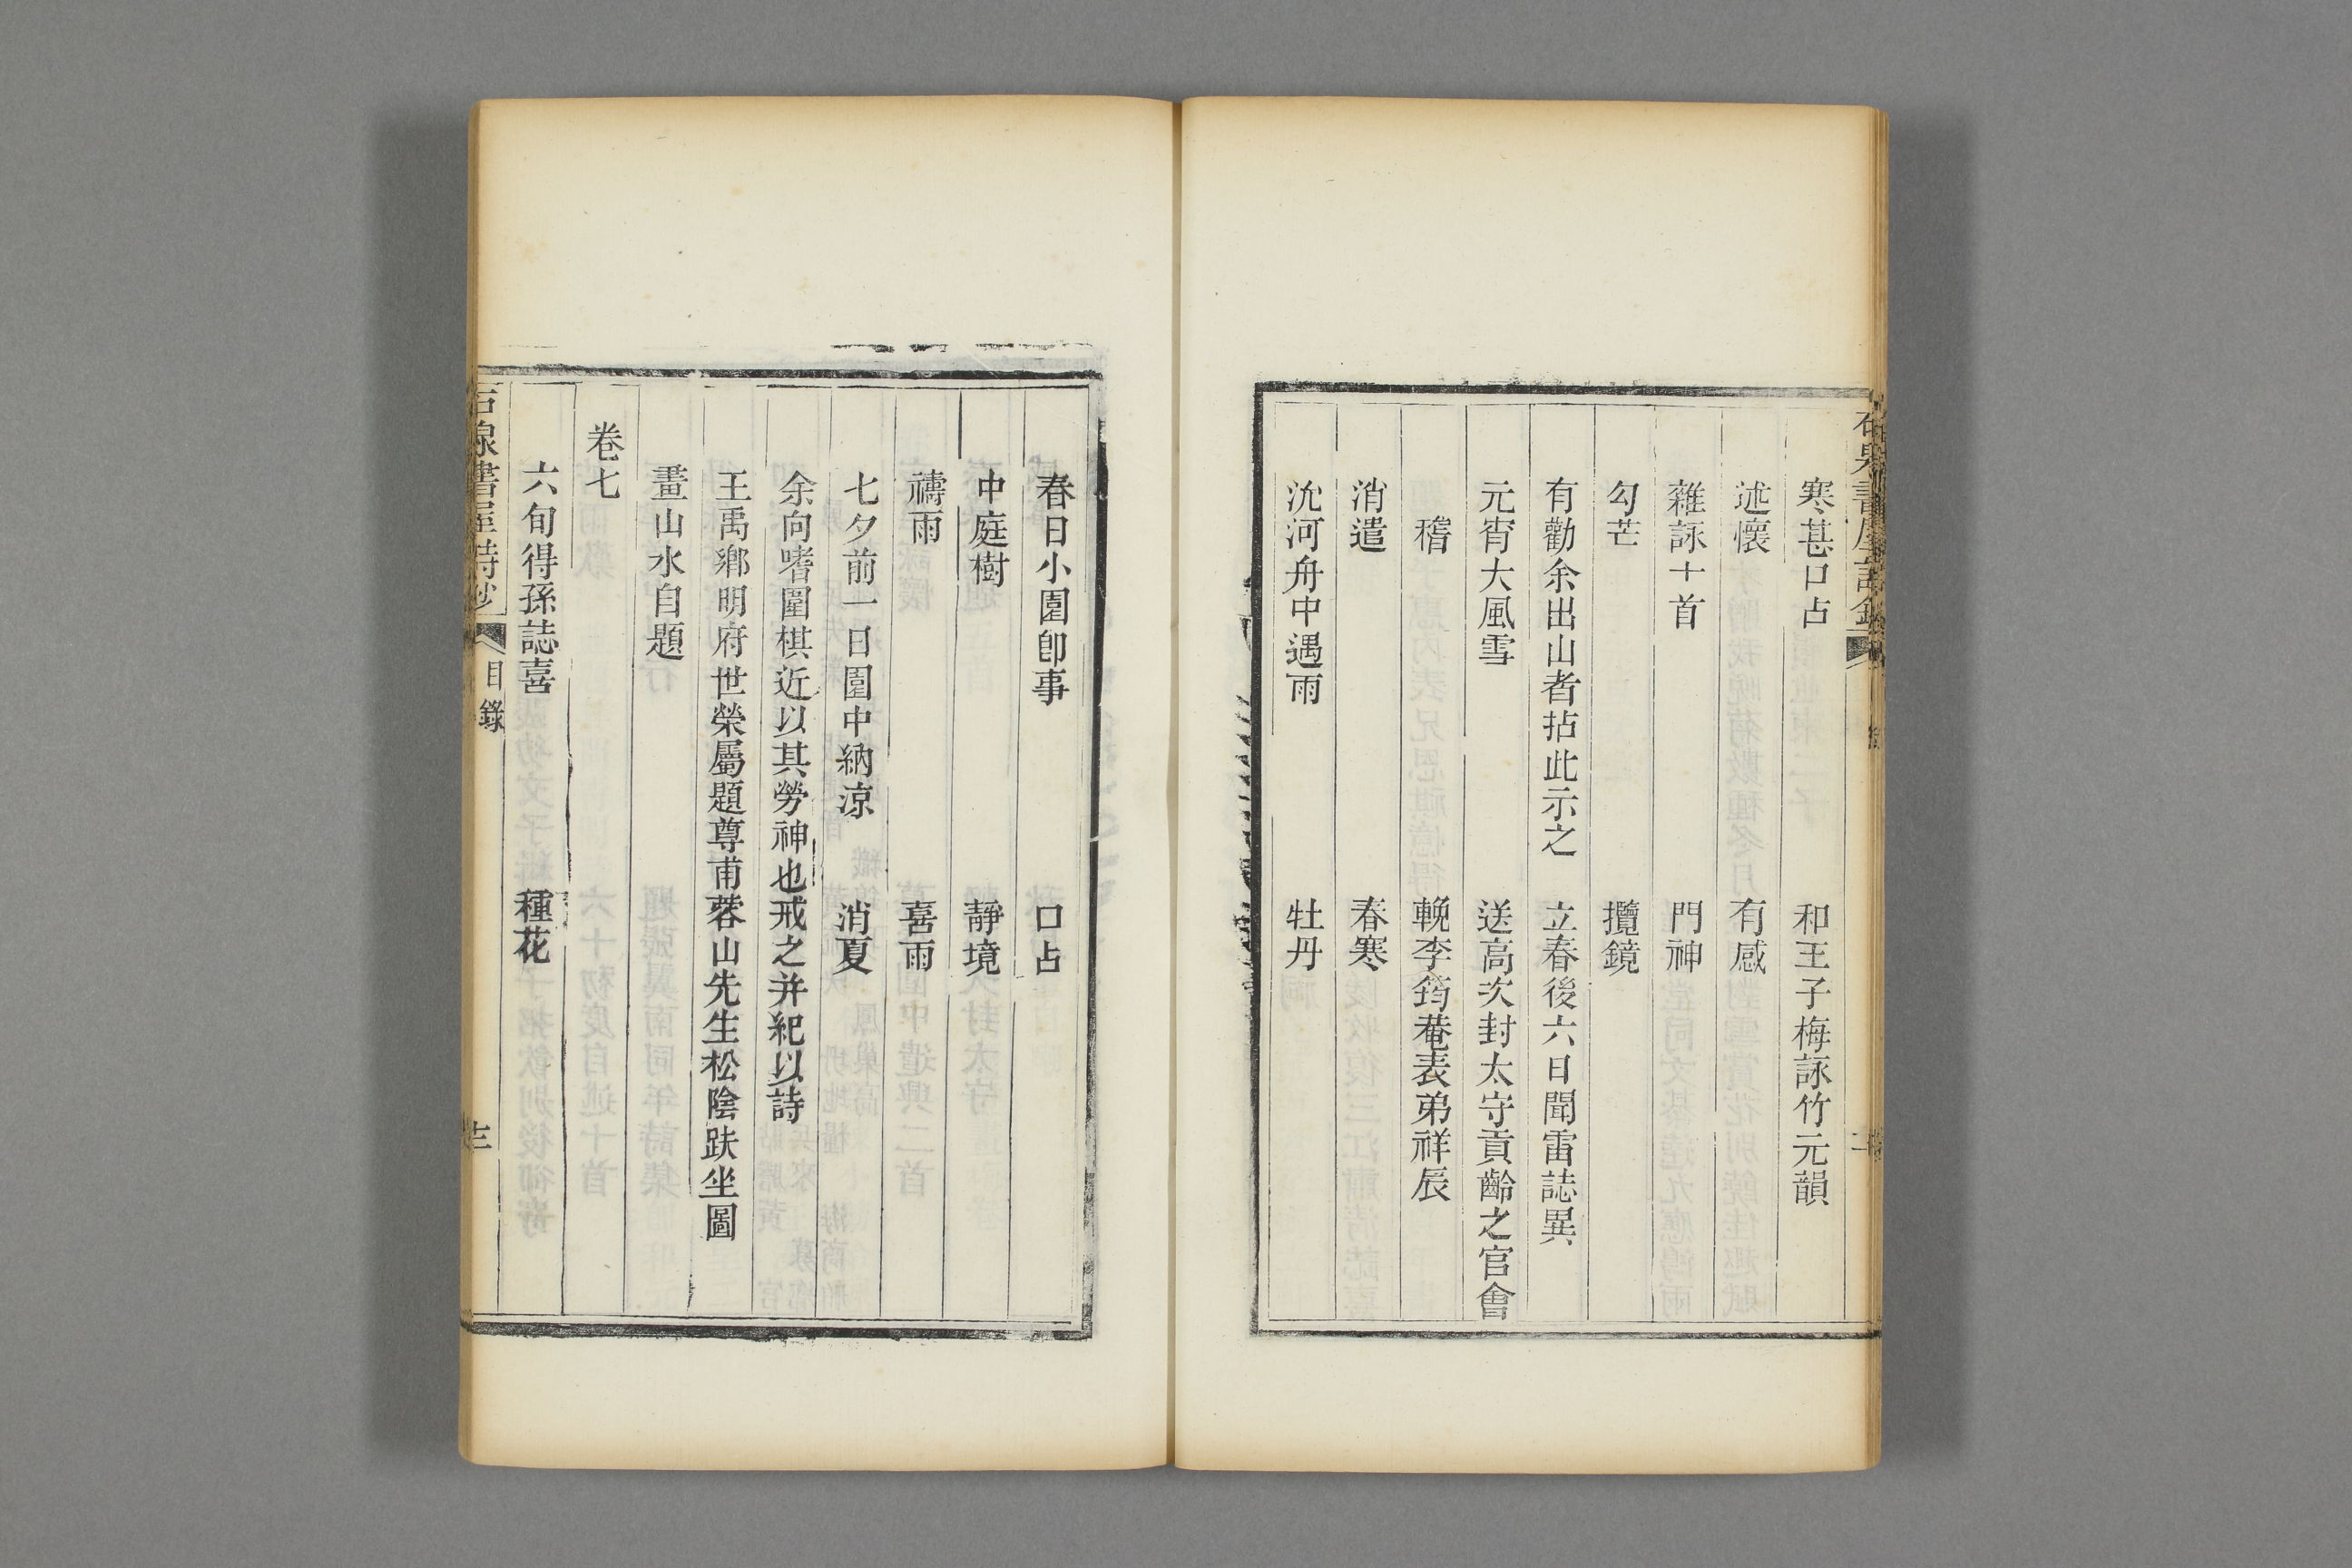 寒甚口占　和王子梅詠竹元韻
述懷　有感
雜詠十首　門神
勾芒　攬鏡
有勸余出山者拈此示之　立春後六日聞雷誌異
元宵大風雪　送高次封太守貢齡之官會
稽　輓李筠菴表弟祥辰
消遣　春寒
沇河舟中遇雨　牡丹
春日小園卽事　口占
中庭樹　靜境
禱雨　喜雨
七夕前一日園中納涼　消夏
余向嗜圍棋近以其勞神也戒之并紀以詩
王禹鄉明府世榮屬題尊甫蓉山先生松陰趺坐圖
畫山水自題
卷七
六旬得孫誌喜　種花
石泉書屋詩鈔　目錄